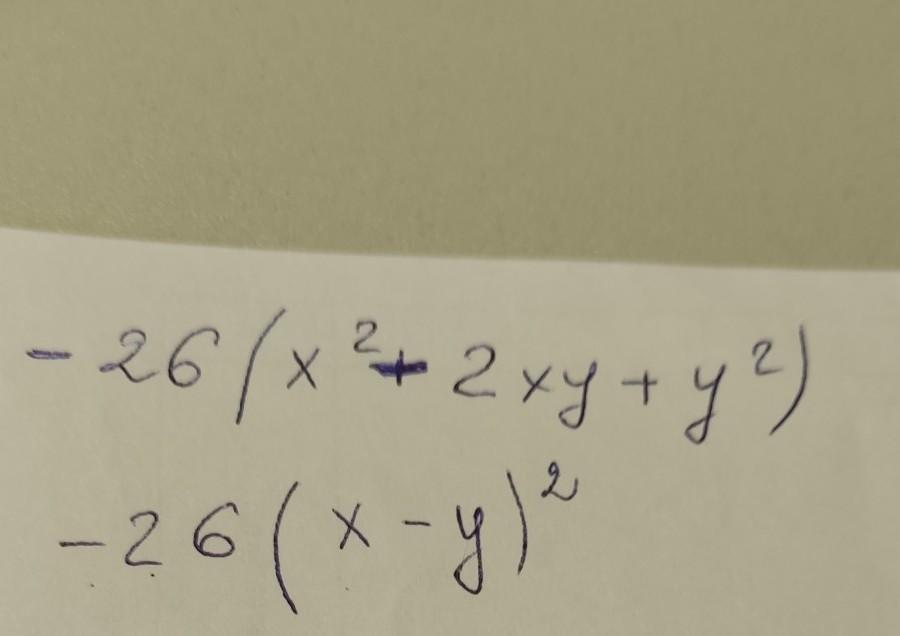 - 26 (x² + 2xy + y²)
- 26 (x - y)²